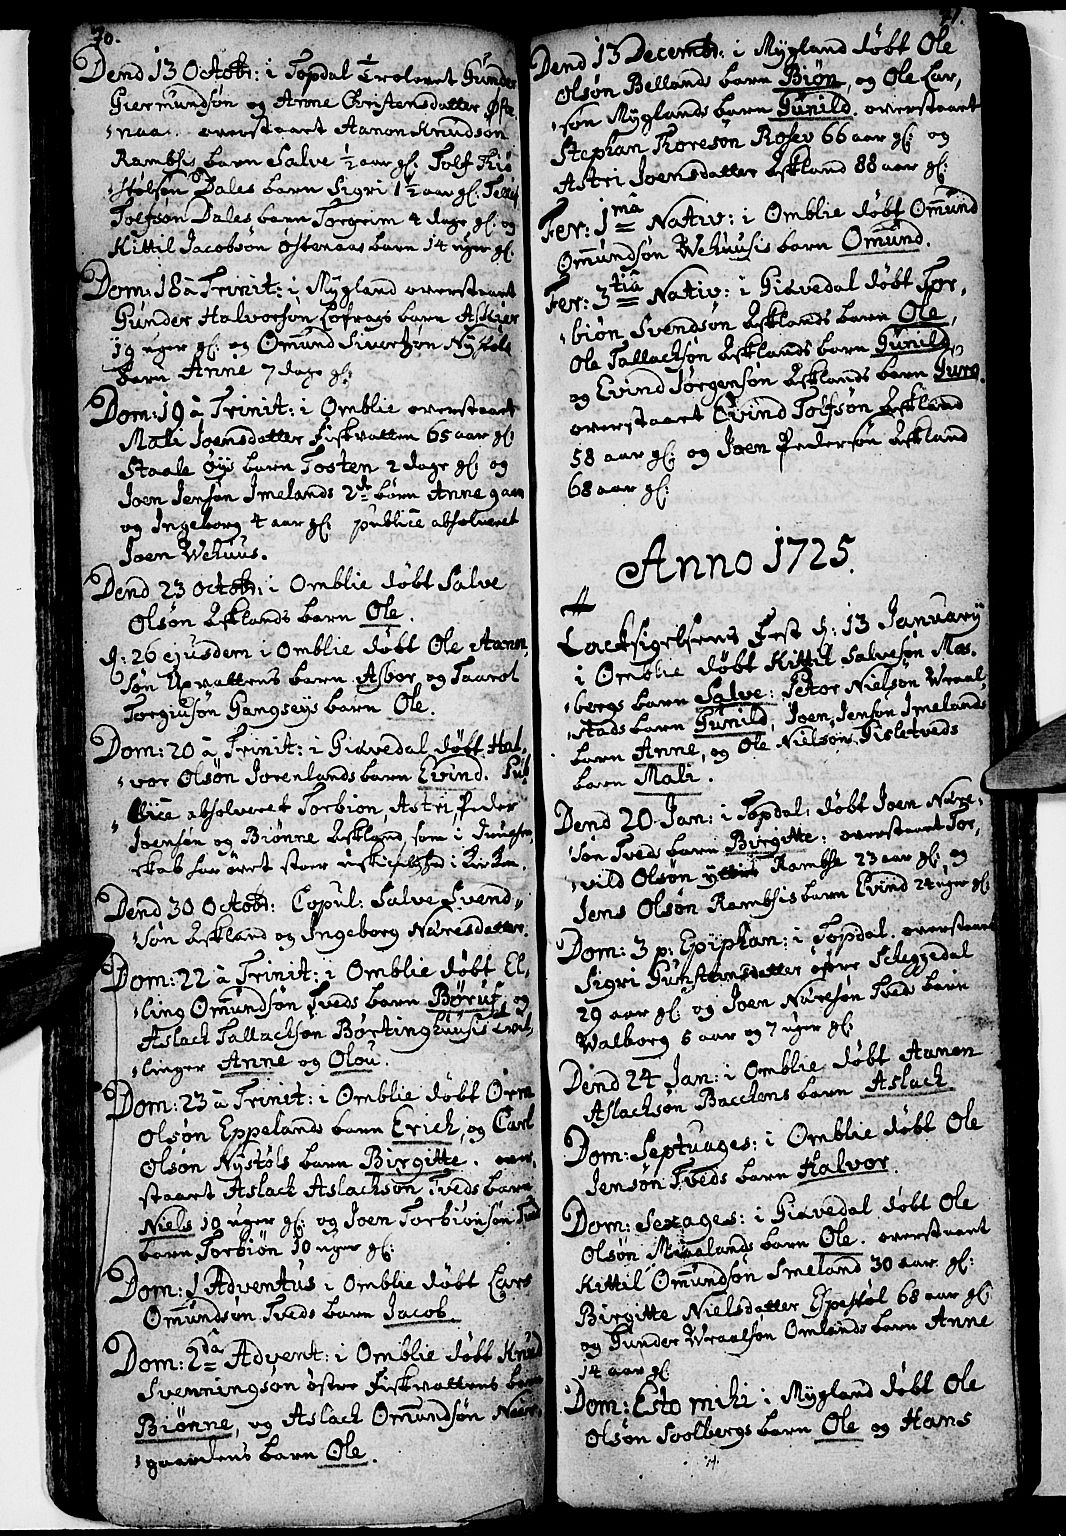 70.
Dend 13 Octobr: i Topdal Trolovet Gunder
Giermundsøn og Anne Christensdatter Øste
naa. overstaaet Aanon Knudsøn
Ramhsis barn Salve ½ aar gl: Tolf Kiø
stolsøn Dales barn Sigri 1½ aar gl:
Tolfsøn Dales barn Torgrim 4 dage gl: og
Kittil Jacobsøn Østenaas barn 14 uger gl:
Dom: 18 à Trinit: i Mygland overstaaet
Gunder Halvorsøn Lofrags barn Askier
19 uger gl: og Omund Sivertsøn Nystøls
barn Anne 7 dage gl:
Dom: 19 à Trinit: i Omblie overstaaet
Mali Joensdatter Fiskvatten 65 aar gl:
Staale Øys barn Tosten 2 dage gl: og
Joen Jensøn Jmelands 2de børn Anne 9 aar
og Ingeborg 4 aar gl: publicè absolveret
Joen Wehuus.
Dend 23 Octobr: i Omblie døbt Salve
Olsøn Asklands barn Ole.
d: 26 ejusdem i Omblie døbt Ole Aanon,
søn Upvattens barn Asbor og Taarol
Torgiusøn Gangseys barn Ole.
Dom: 20 à Trinit: i Giøvedal døbt Hal,
vor Olsøn Jorenlands barn Evind. Pub
licè absolveret Torbiøn, Astri, Peder
Joensøn og Biønne Askland, som i
skab har øvet stoer uskikelighed i Kirken.
Dend 30 Octobr: Copul: Salve Svend,,
søn Askland og Ingeborg Næresdatter.
Dom: 22 à Trinit: i Omblie døbt El,
ling Omundsøn Tveds barn Børuf, og
Aslach Tallachsøn Børtinghuusis tvil,
linger Anne og Olou.
Dom: 23 à Trinit: i Omblie døbt Orm
Olsøn Eppelands barn Erich, og Carl
Olsøn Nystøls barn Birgitte. over,
staaet Aslach Aslachsøn Tveds barn
Niels 19 uger gl: og Joen Torbiønsøn Tved
barn Torbiøn 10 uger gl:
Dom: 1 Adventus i Omblie døbt Lars
Omundsøn Tveds barn Jacob.
Dom: 2da Advent: i Omblie døbt Knud
Svenningsøn østre Fiskvattens barn
Biønne, og Aslach Omundsøn Næs,
gaardens barn Ole.
71.
Dend 13 Decembr: i Mygland døbt Ole
Olsøn Bellands barn Biøn, og Ole Lar,
søn Myglands barn Gunild. overstaaet
Stephan Thoresøn Rosev 66 aar gl: og
Astri Joensdatter Askland 88 aar gl:
Fer: 1mâ Nativ: i Omblie døbt Omund
Omundsøn Wehuusis barn Omund.
Fer: 3tiâ Nativ: i Giøvedal døbt Tor,
biøn Svendsøn Asklands barn Ole,
Ole Tallachsøn Asklands barn Gunild,
og Evind Jørgensøn Asklands barn Guro.
overstaaet Evind Tolfsøn Askland
58 aar gl: og Joen Pedersøn Askland
68 aar gl:
Anno 1725.
Tacksigelsens Fest d: 13 Januarij
i Omblie døbt Kittil Salvesøn Mas,
bergs barn Salve: Peter Nielsøn Wraal,
stads barn Gunild, Joen Jensøn Jmelands
barn Anne, og Ole Nielsøn Gisletveds
barn Mali.
Dend 20 Jan: i Topdal: døbt Joen Nære,
søn Tveds barn Birgitte: overstaaet Tor,
vild Olsøn yttre Ramhse 23 aar gl: og
Jens Olsøn Ramhsis barn Evind 24 uger gl:
Dom: 3 p: Epiphan: i Topdal. overstaaet
Sigri Gunstensdatter øfvre Scheggedal
29 aar gl: og Joen Næresøn Tveds barn
Walborg 6 aar og 7 uger gl:
Dend 24 Jan: i Omblie døbt Aanen
Aslachsøn Bachens barn Aslach
Dom: Septuages: i Omblie døbt Ole
Jensøn Tveds barn Halvor.
Dom: Sexages: i Giøvedal døbt Ole
Olsøn Mirelands barn Ole. overstaaet
Kittil Omundsøn Smeland 30 aar gl:
Birgitte Nielsdatter Espestøl 68 aar gl:
og Gunder Wraalsøn Omlands barn Anne
14 aar gl:
Dom: Esto mihi i Mygland døbt Ole
Olsøn Soolbergs barn Ole og Hans